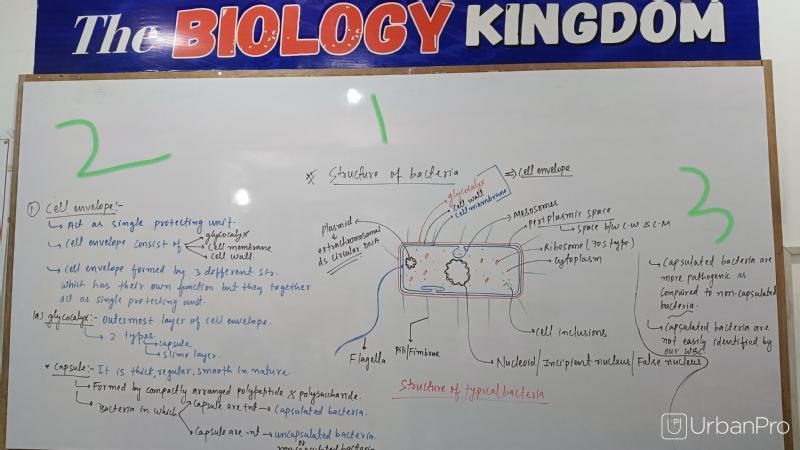 The BIOLOGY KINGDOM
2
1
3
* Structure of bacteria
glycocalyx
cell wall
cell membrane
⇒ cell envelope
Plasmid
↓
extrachromosomal
ds circular DNA
Mesosomes
Periplasmic space
↳ space b/w C.W & C.M
Ribosome (70s type)
cytoplasm
cell inclusions
Nucleoid/Incipient nucleus/False nucleus
Pili/Fimbrae
Flagella
Structure of typical bacteria
① Cell envelope:-
↳ Act as single protecting unit.
↳ cell envelope consist of
glycocalyx
cell membrane
cell wall.
↳ cell envelope formed by 3 different str.
which has their own function but they together
act as single protecting unit.
(a) glycocalyx:- outermost layer of cell envelope.
↳ 2 types
↳ capsule
↳ slime layer.
* Capsule:- It is thick, regular, smooth in nature.
↳ Formed by compactly arranged polypeptide & polysaccharide.
↳ Bacteria in which
Capsule are +nt → capsulated bacteria.
Capsule are -nt → uncapsulated bacteria.
or
↳ capsulated bacteria are
more pathogenic as
compared to non-capsulated
bacteria.
↳ capsulated bacteria are
not easily identified by
our WBC.
UrbanPro